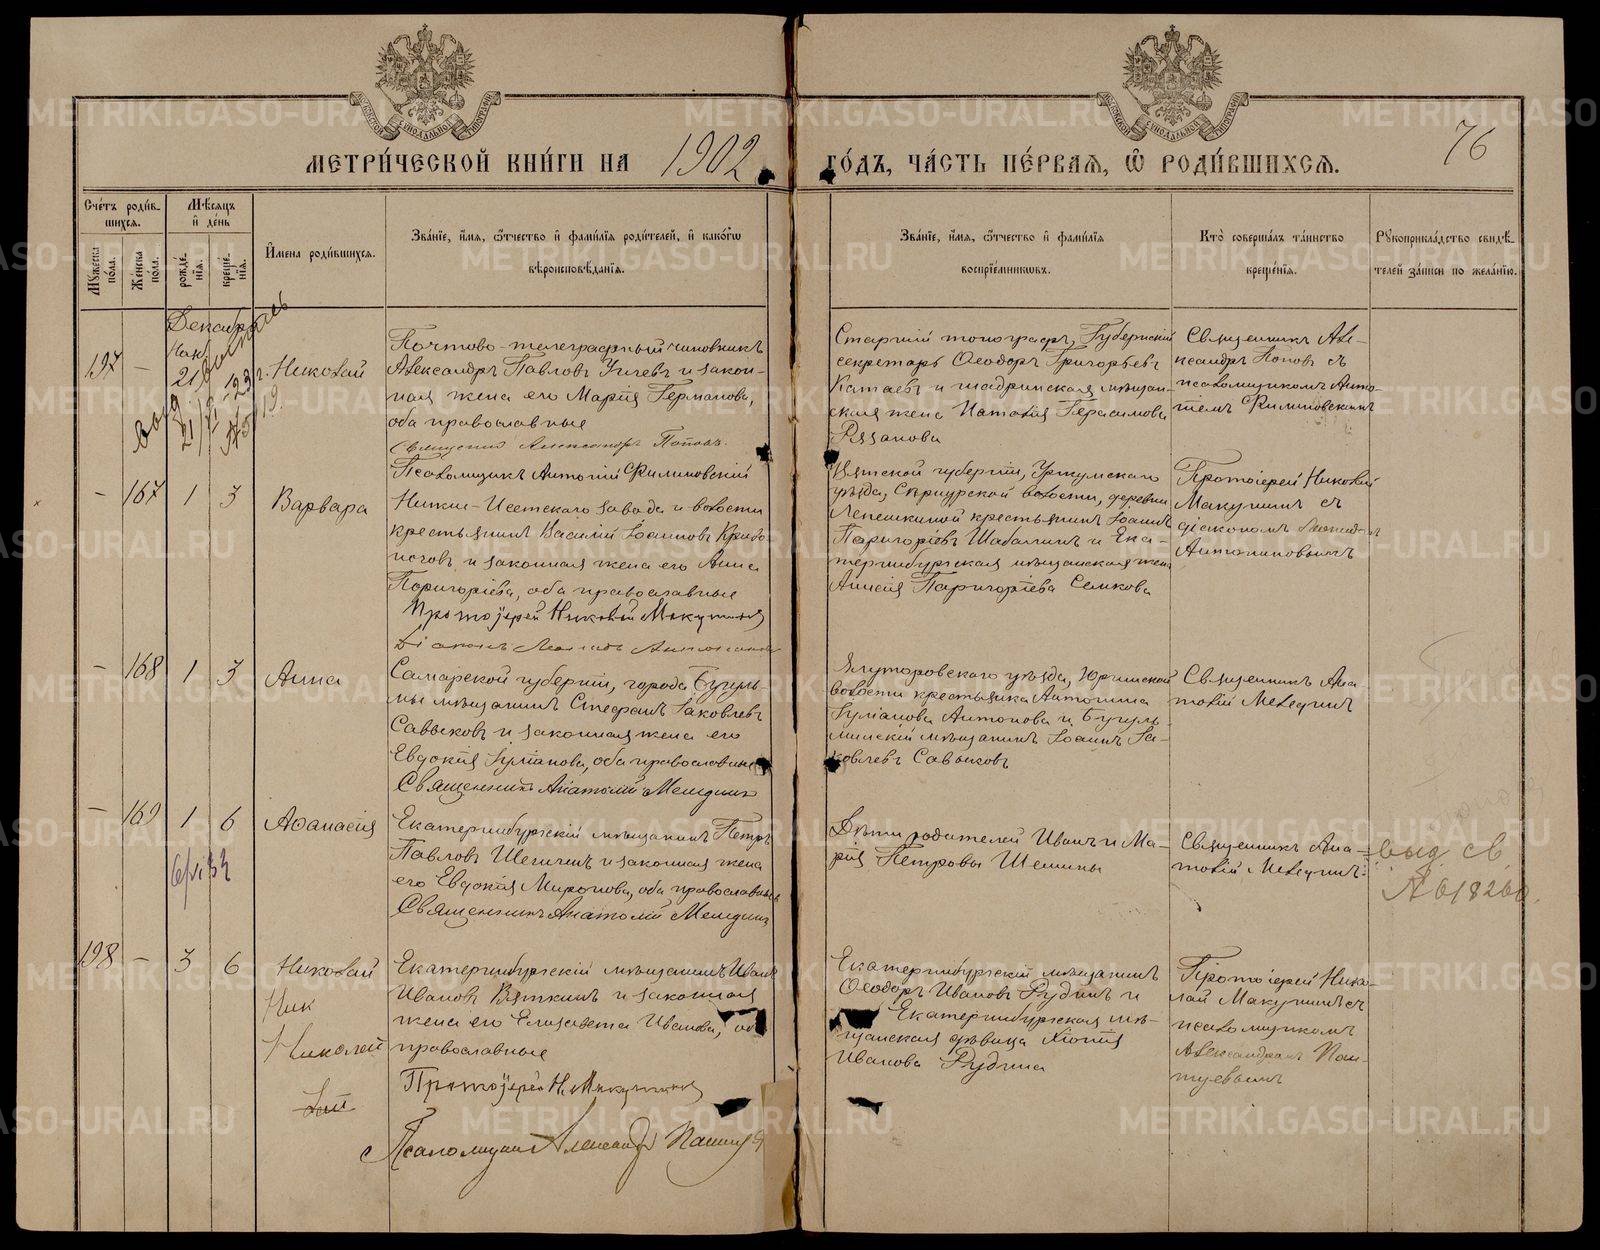 МЕТРИ́ЧЕСКОЙ КНИ́ГИ НА 1902
ГО́ДЪ, ЧА́СТЬ ПЕ́РВАЯ, Ѿ РОДИ́ВШИХСЯ.
76
Сче́тъ роди́в-
шихся.
Мѣсяцъ
и де́нь
Мужеска по́ла.
Женска по́ла.
рожде́-
нїя.
креще́-
нїя.
И́мена роди́вшихся.
Зва́нїе, и́мя, ѻ҆́тчество и фами́лїя роди́телей, и како́гѡ
вѣроисповѣ́данїя.
Зва́нїе, и́мя, ѻ҆́тчество и фами́лїя
воспрїе́мникѡвъ.
Кто̀ соверша́лъ та́инство
креще́нїя.
Рукоприкла́дство свидѣ́-
телей за́писи по жела́нїю.
Декабрь
197 –
21
Николай
Почтово-телеграфный чиновникъ
Александръ Павловъ и закон-
ная жена его Марія Германова,
оба православные
Священникъ Александръ Поповъ.
Псаломщикъ Антоній Филиповскій
Старшій топографъ, Губернскій
секретарь Ѳеодоръ Григорьевъ
Катаевъ и шадринская мѣщан-
ская жена Наталія Герасимова
Рязанова
Священникъ Але-
ксандръ Поповъ съ
псаломщикомъ Анто-
ніемъ Филиповскимъ
– 167 1 3
Варвара
Нижне-Исетскаго завода и волости
крестьянинъ Василій Іоанновъ Криво-
ноговъ и законная жена его Анна
Паригоріева, оба православные
Протоіерей Николай Макушинъ
Діаконъ
Вятской губерніи, Уржумскаго
уѣзда, Сернурской волости, деревни
Лепешкиной крестьянинъ Іоаннъ
Паригоріевъ Шабалинъ и Ека-
теринбургская мѣщанская жена
Анисія Паригоріева Семкова
Протоіерей Николай
Макушинъ съ
діакономъ
Антониновымъ
– 168 1 3
Анна
Самарской губерніи, города Бугуль-
мы мѣщанинъ Стефанъ Іаковлевъ
Савыковъ и законная жена его
Евдокія Іуліанова, оба православные
Священникъ Анатолій Мелединъ
Ялуторовскаго уѣзда, Юргинской
волости крестьянка Антонина
Іуліанова Антонова и Бугуль-
минскій мѣщанинъ Іоаннъ Іа-
ковлевъ Савыковъ
Священникъ Ана-
толій Мелединъ
– 169 1 6
Аѳанасія
Екатеринбургскій мѣщанинъ Петръ
Павловъ Шешинъ и законная жена
его Евдокія Миронова, оба православные
Священникъ Анатолій Мелединъ
Дѣти родителей Иванъ и Ма-
рія Петровы Шешины
Священникъ Ана-
толій Мелединъ
выд. св.
№ 618260.
198 – 3 6
Николай
Ник
Николай
Лай
Екатеринбургскій мѣщанинъ Иванъ
Ивановъ Вяткинъ и законная
жена его Елисавета Иванова, оба
православные
Протоіерей Н. Макушинъ
Псаломщикъ Александръ
Екатеринбургскій мѣщанинъ
Ѳеодоръ Ивановъ Рудинъ и
Екатеринбургская мѣ-
щанская дѣвица Хіонія
Иванова Рудина
Протоіерей Нико-
лай Макушинъ съ
псаломщикомъ
Александромъ Паш-
туевымъ
METRIKI.GASO-URAL.RU